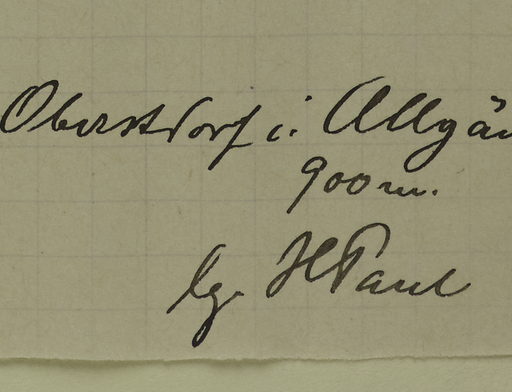 Oberstdorf i. Allgäu
900 m.
lg. H Paul